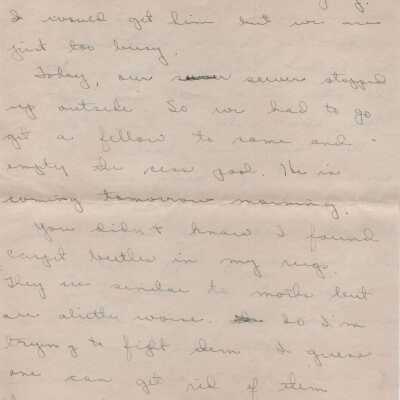 I would get him but we are
just too busy.
Today, our sewer stopped
up outside. So we had to go
get a fellow to come and
empty the cess pool. He is
coming tomorrow morning.
You didn't know I found
carpet beetles in my rug.
They are similar to moths but
are alittle worse. So I'm
trying to fight them. I guess
one can get rid of them